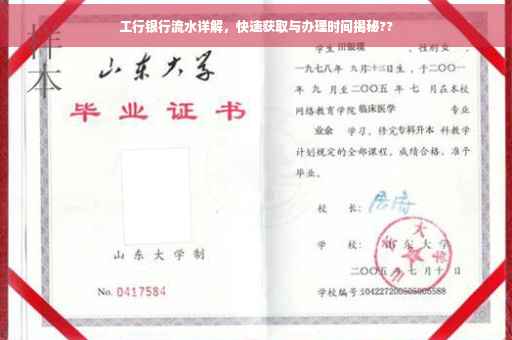 工行银行流水详解，快速获取与办理时间揭秘??
样本
山东大学
毕业证书
山东大学制
No. 0417584
学生 田银瑞 ，性别 女 ，
一九七八年 九月十三日生，于二〇〇一
年 九 月至二〇〇五 年 七 月在本校
网络教育学院 临床医学 专业
业余 学习，修完专科升本 科教学
计划规定的全部课程，成绩合格，准予
毕业。
校 长：
学 校：山东大学
二〇〇五 年 七 月 十 日
学校编号:104227200505005588